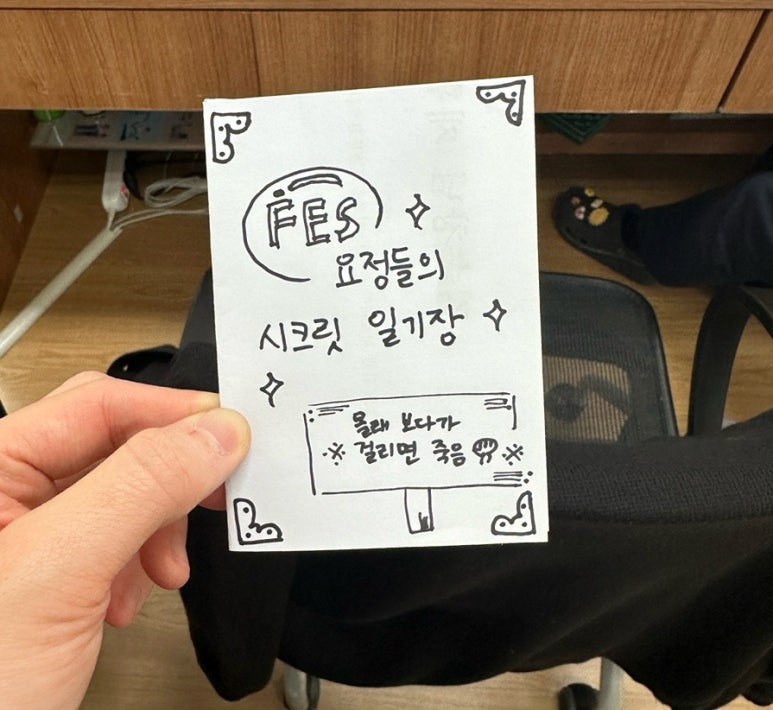 FES
요정들의
시크릿 일기장
몰래 보다가
※ 걸리면 죽음 ※